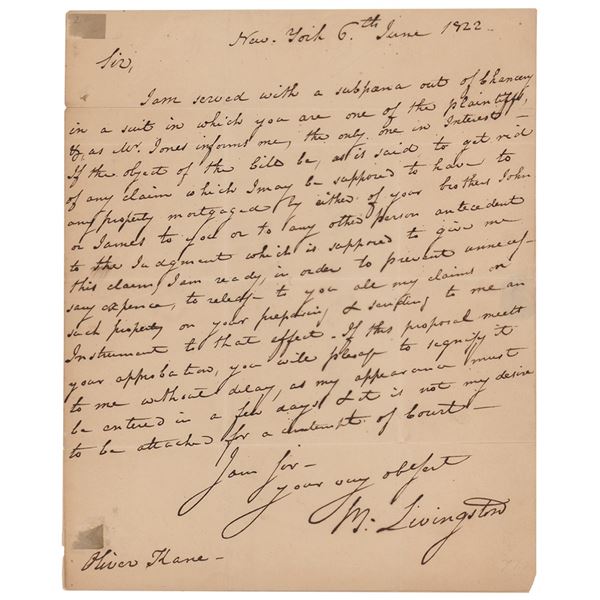 New-York 6.th June 1822.
Sir,
I am served with a subpana out of Chancery
in a suit in which you are one of the plaintiffs,
&, as Mr. Jones informs me, the only one in Interest—
If the object of the bill be, as is said to get rid
of any claim which I may be supposed to have to
any property mortgaged by either of your brothers John
or James to you or to any other person antecedent
to the Judgment which is supposed to give me
this claim, I am ready, in order to prevent unneces-
sary expence, to release to you all my claims on
such property on your preparing & sending to me an
Instrument to that effect. If this proposal meets
your approbation, you will please to signify it
to me without delay, as my appearance must
be entered in a few days & it is not my desire
to be attached for a contempt of Court—
I am Sir—
your very obt Sert
M. Livingston
Oliver Kane—